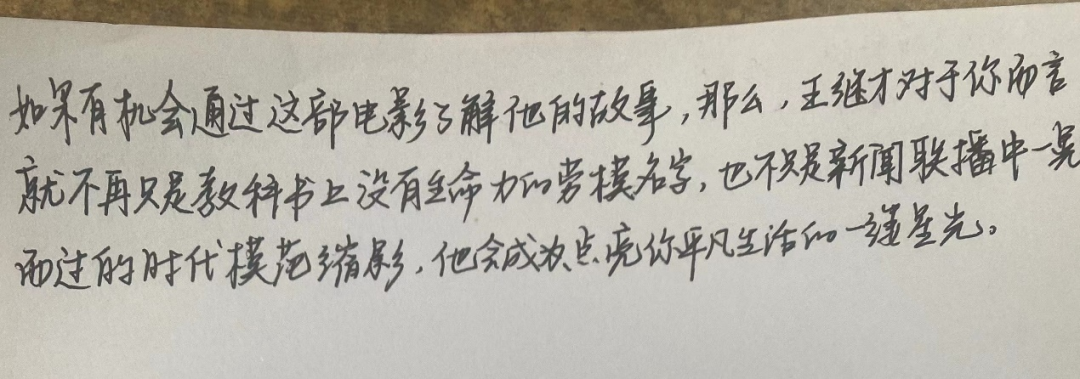 如果有机会通过这部电影了解他的故事,那么,王继才对于你而言
就不再只是教科书上没有生命力的劳模名字,也不只是新闻联播中一晃
而过的时代模范缩影,他会成为点亮你平凡生活的一缕星光。